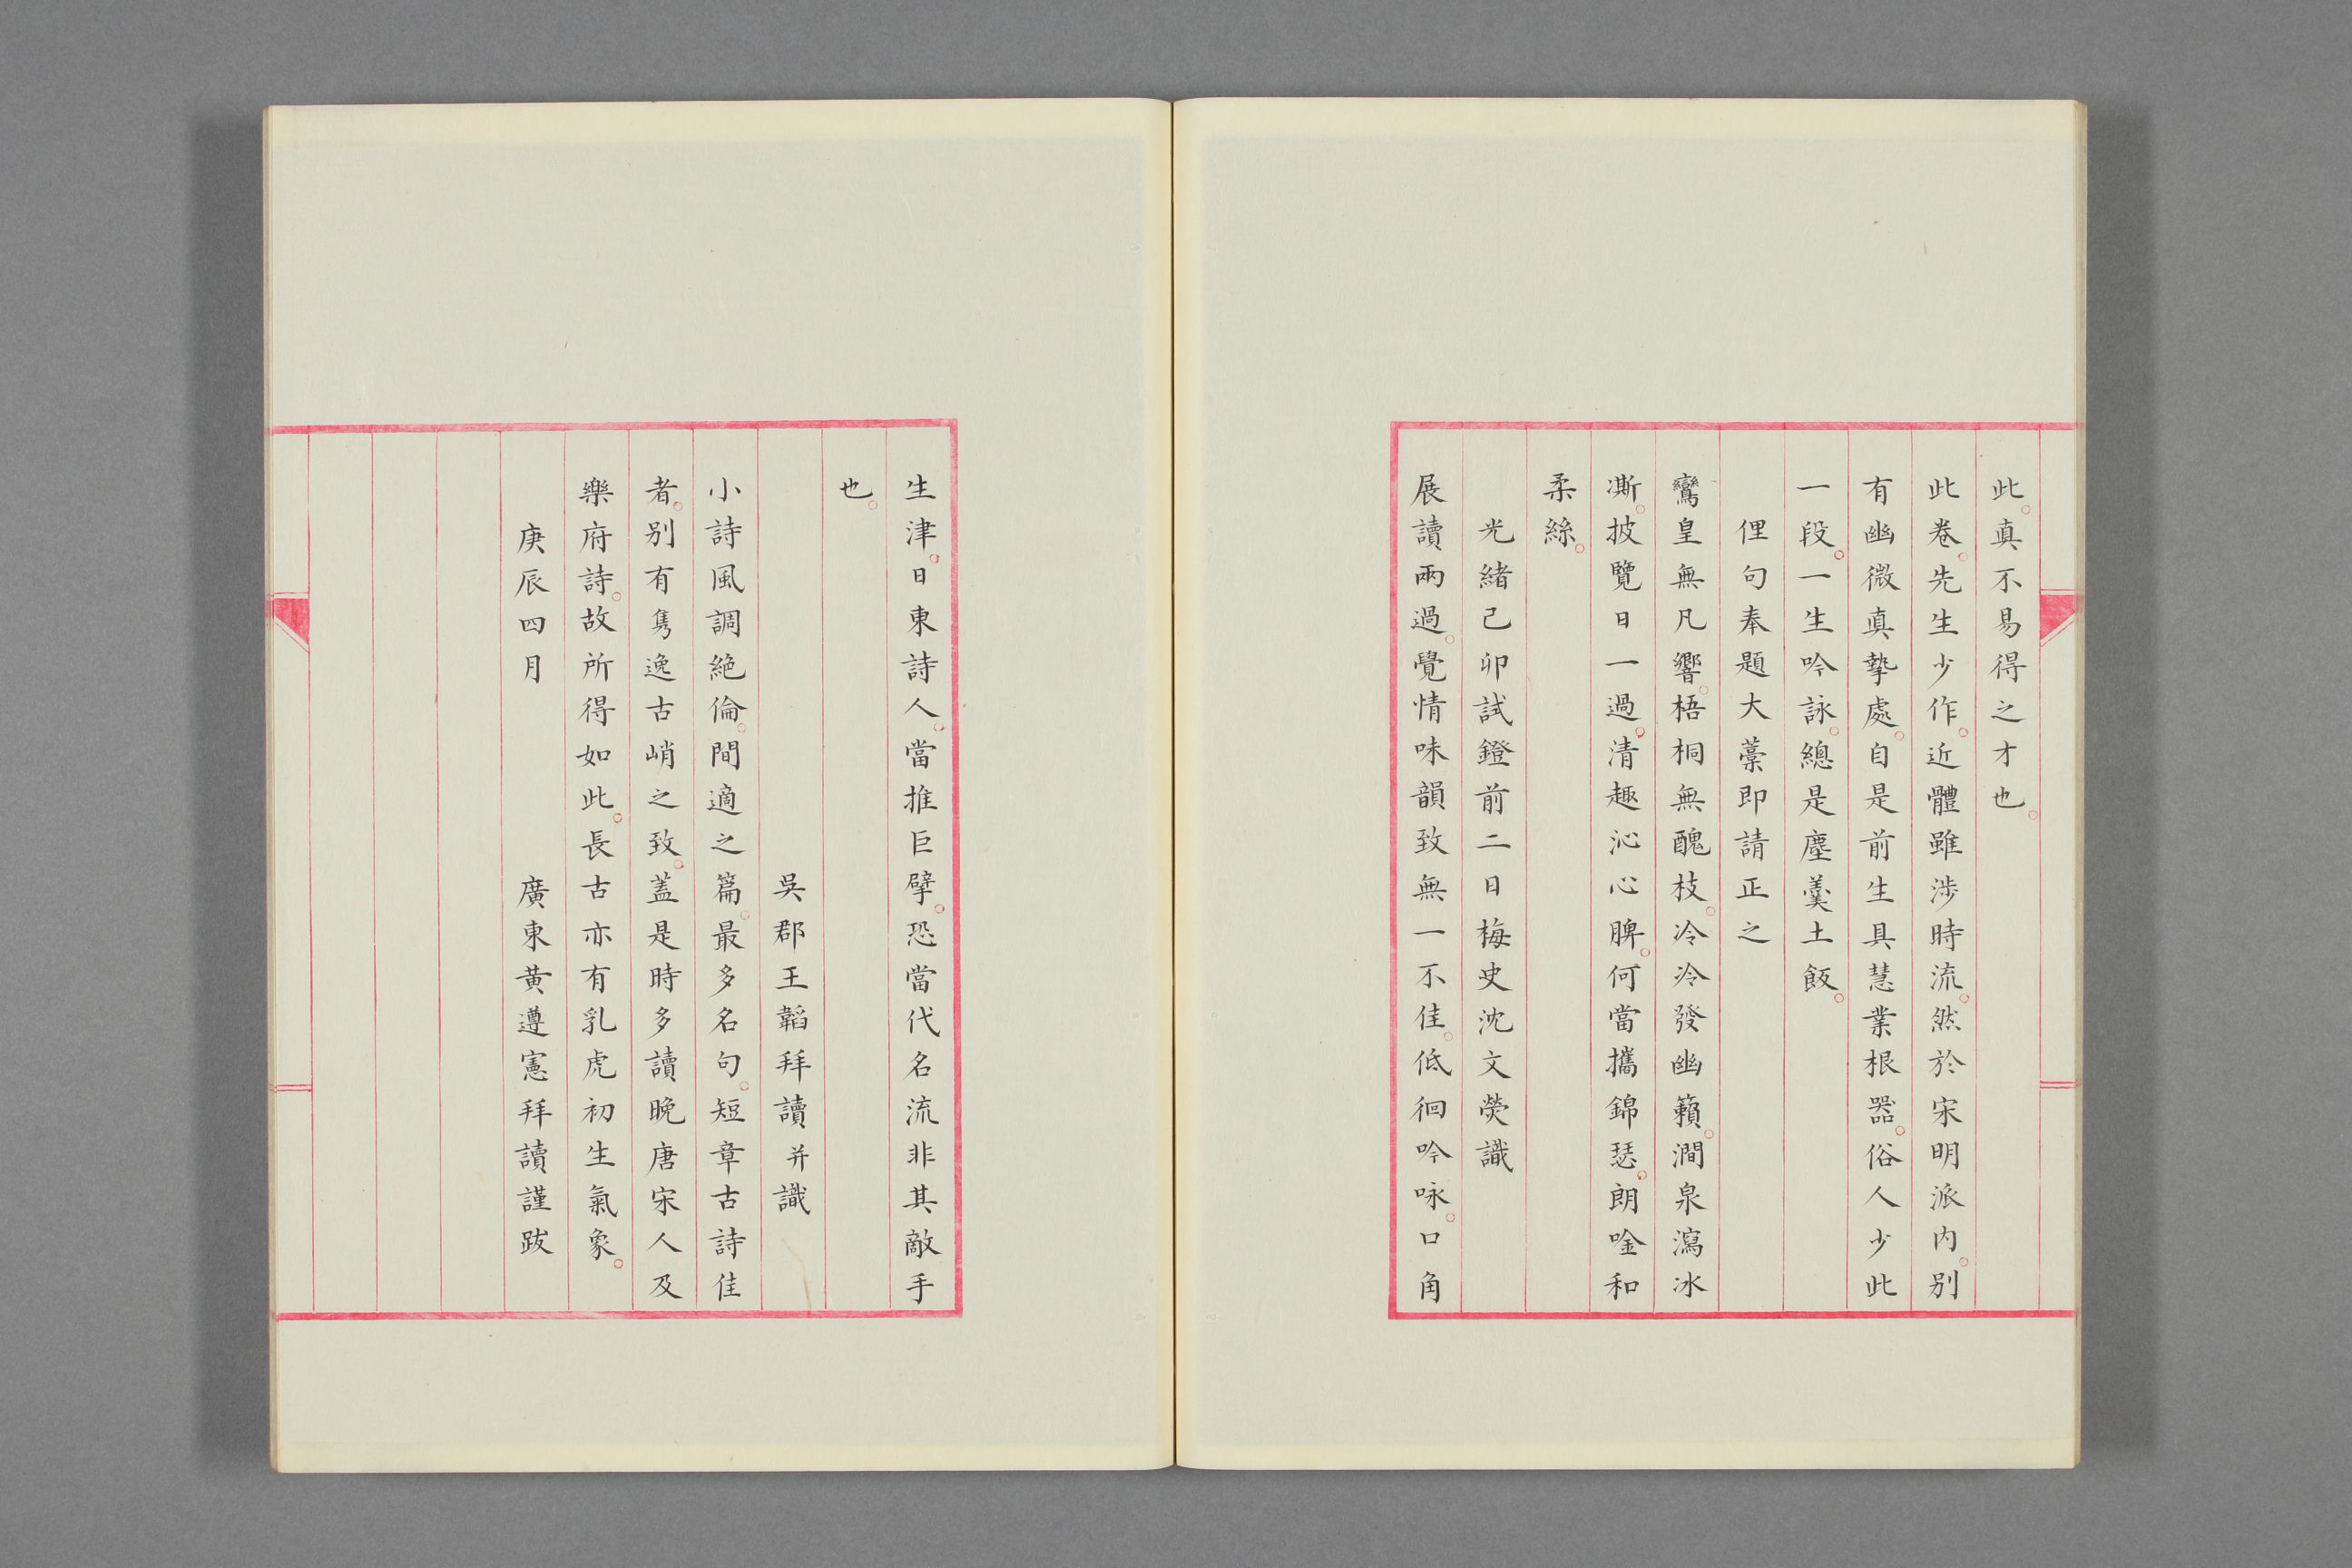 此。真不易得之才也。
此卷。先生少作。近體雖涉時流。然於宋明派内。別
有幽微真摯處。自是前生具慧業根器。俗人少此
一段。一生吟詠。總是塵羹土飯。
俚句奉題大藁即請正之
鸞皇無凡響。梧桐無醜枝。泠泠發幽籟。澗泉瀉冰
澌。披覽日一過。清趣沁心脾。何當攜錦瑟。朗唫和
柔絲。
光緒己卯試鐙前二日梅史沈文熒識
展讀兩過。覺情味韻致無一不佳。低徊吟咏。口角
生津。日東詩人。當推巨擘。恐當代名流非其敵手
也。
吳郡王韜拜讀并識
小詩風調絕倫。間適之篇。最多名句。短章古詩佳
者。別有雋逸古峭之致。蓋是時多讀晚唐宋人及
樂府詩。故所得如此。長古亦有乳虎初生氣象。
庚辰四月 廣東黃遵憲拜讀謹跋